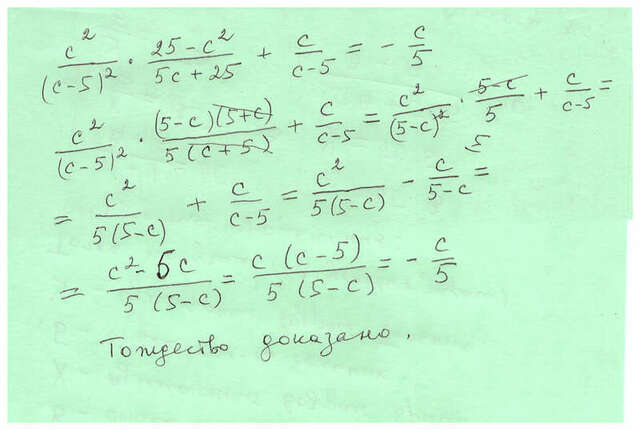 c²/(c-5)² · 25-c²/5c+25 + c/c-5 = - c/5
c²/(c-5)² · (5-c)(5+c)/5(c+5) + c/c-5 = c²/(5-c)² · 5-c/5 + c/c-5 =
= c²/5(5-c) + c/c-5 = c²/5(5-c) - c/5-c = 5
= c²-5c/5(5-c) = c(c-5)/5(5-c) = - c/5
Тождество доказано.